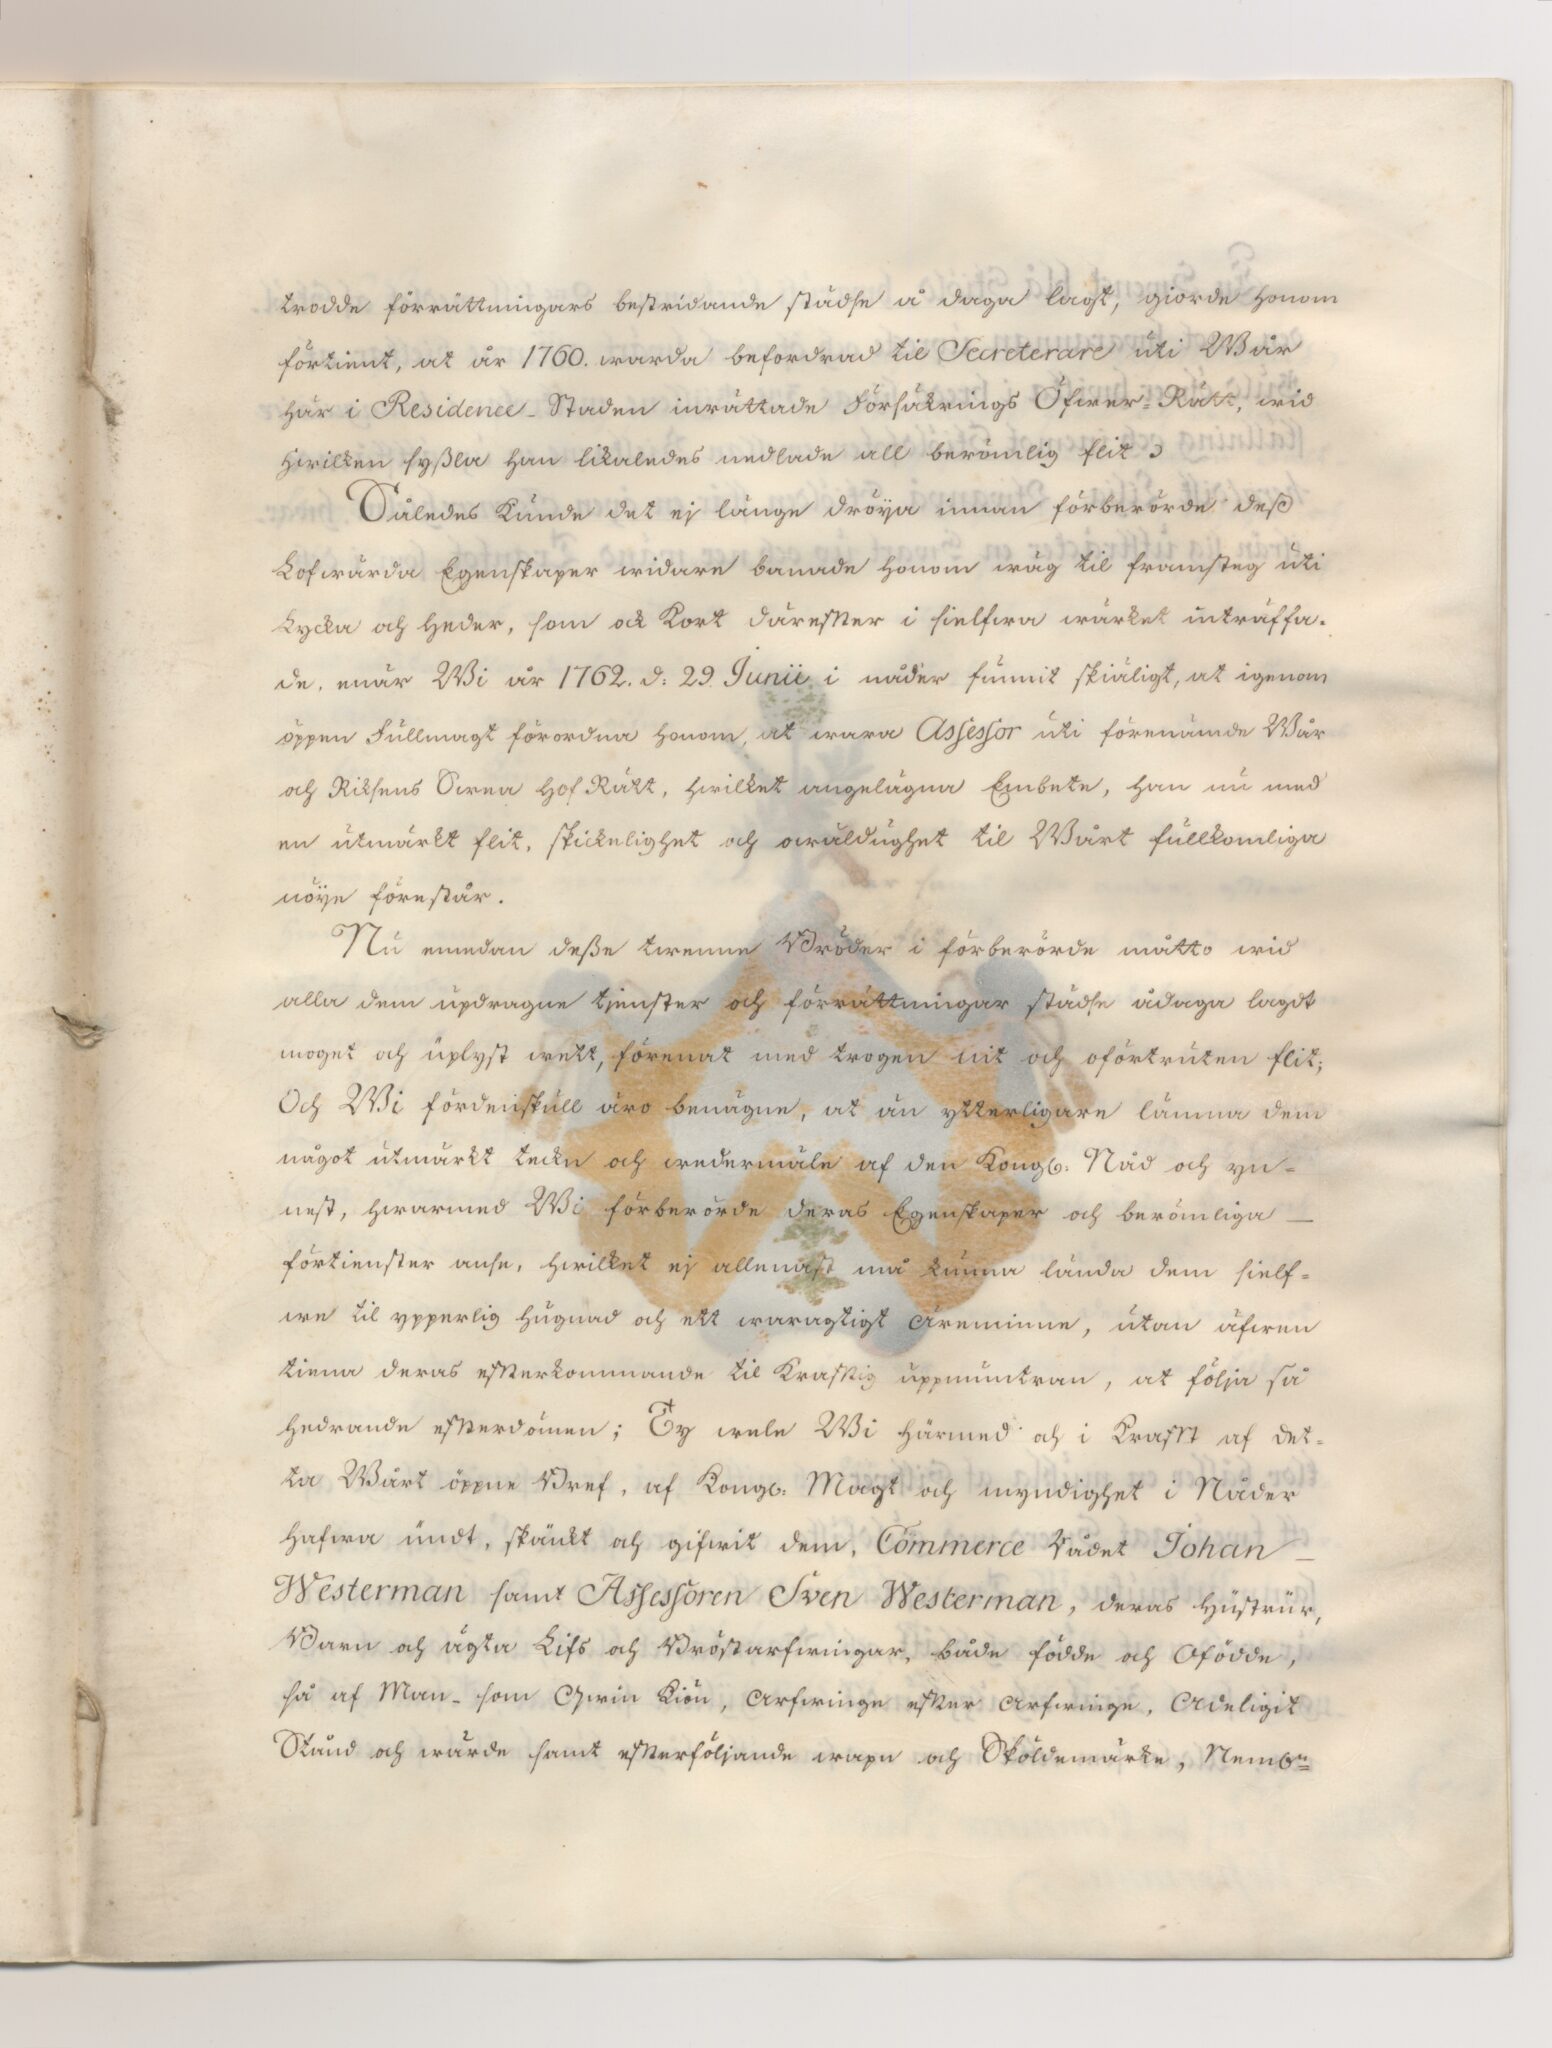 trodde förrättningars bestridande städse å daga lagt, giorde honom
förtient, at år 1760. warda befordrad til Secreterare uti Wår
här i Residence-Staden inrättade Försäkrings Öfwer-Rätt, wid
hwilken syßla han likaledes nedlade all berömlig flit
Således kunde det ej länge dröya innan förberörde deß
Lofwärda Egenskaper widare banade honom wäg til framsteg uti
Lycka och Heder, som ock kort därefter i sielfwa wärket inträffa-
de, enär Wi år 1762. d: 29. Junii i nåder funnit skiäligt, at igenom
öppen Fullmagt förordna honom, at wara Assessor uti förenämde Wår
och Riksens Swea Hof Rätt, hwilket angelägna Embete, han nu med
en utmärkt flit, skickelighet och owäldughet til Wårt fullkomliga
nöye förestår.
Nu emedan deße twenne Bröder i förberörde måtto wid
alla dem updragne tjenster och förrättningar städse ådaga lagdt
moget och uplyst wett, förenat med trogen nit och oförtruten flit;
Och Wi fördenskull äro benägne, at än ytterligare lämna dem
något utmärkt teckn och wedermäle af den Kongl: Nåd och yn-
nest, hwarmed Wi förberörde deras Egenskaper och berömliga
förtienster anse, hwilket ej allenast må kunna lända dem sielf-
we til ypperlig hugnad och ett waragtigt äreminne, utan äfwen
tiena deras efterkommande til kraftig uppmuntran, at följa så
hedrande efterdömen; Ty wele Wi härmed och i kraft af det-
ta Wårt öppne Bref, af Kongl: Magt och myndighet i Nåder
hafwa undt, skänkt och gifwit dem, Commerce Rådet Johan
Westerman samt Assessoren Sven Westerman, deras Hustrur,
Barn och ägta Lifs och Bröstarfwingar, både födde och Ofödde,
så af Man- som Qwin Kiön, Arfwinge efter Arfwinge, Adeligit
Stånd och wärde samt efterföljande wapn och Sköldemärke, Neml:n